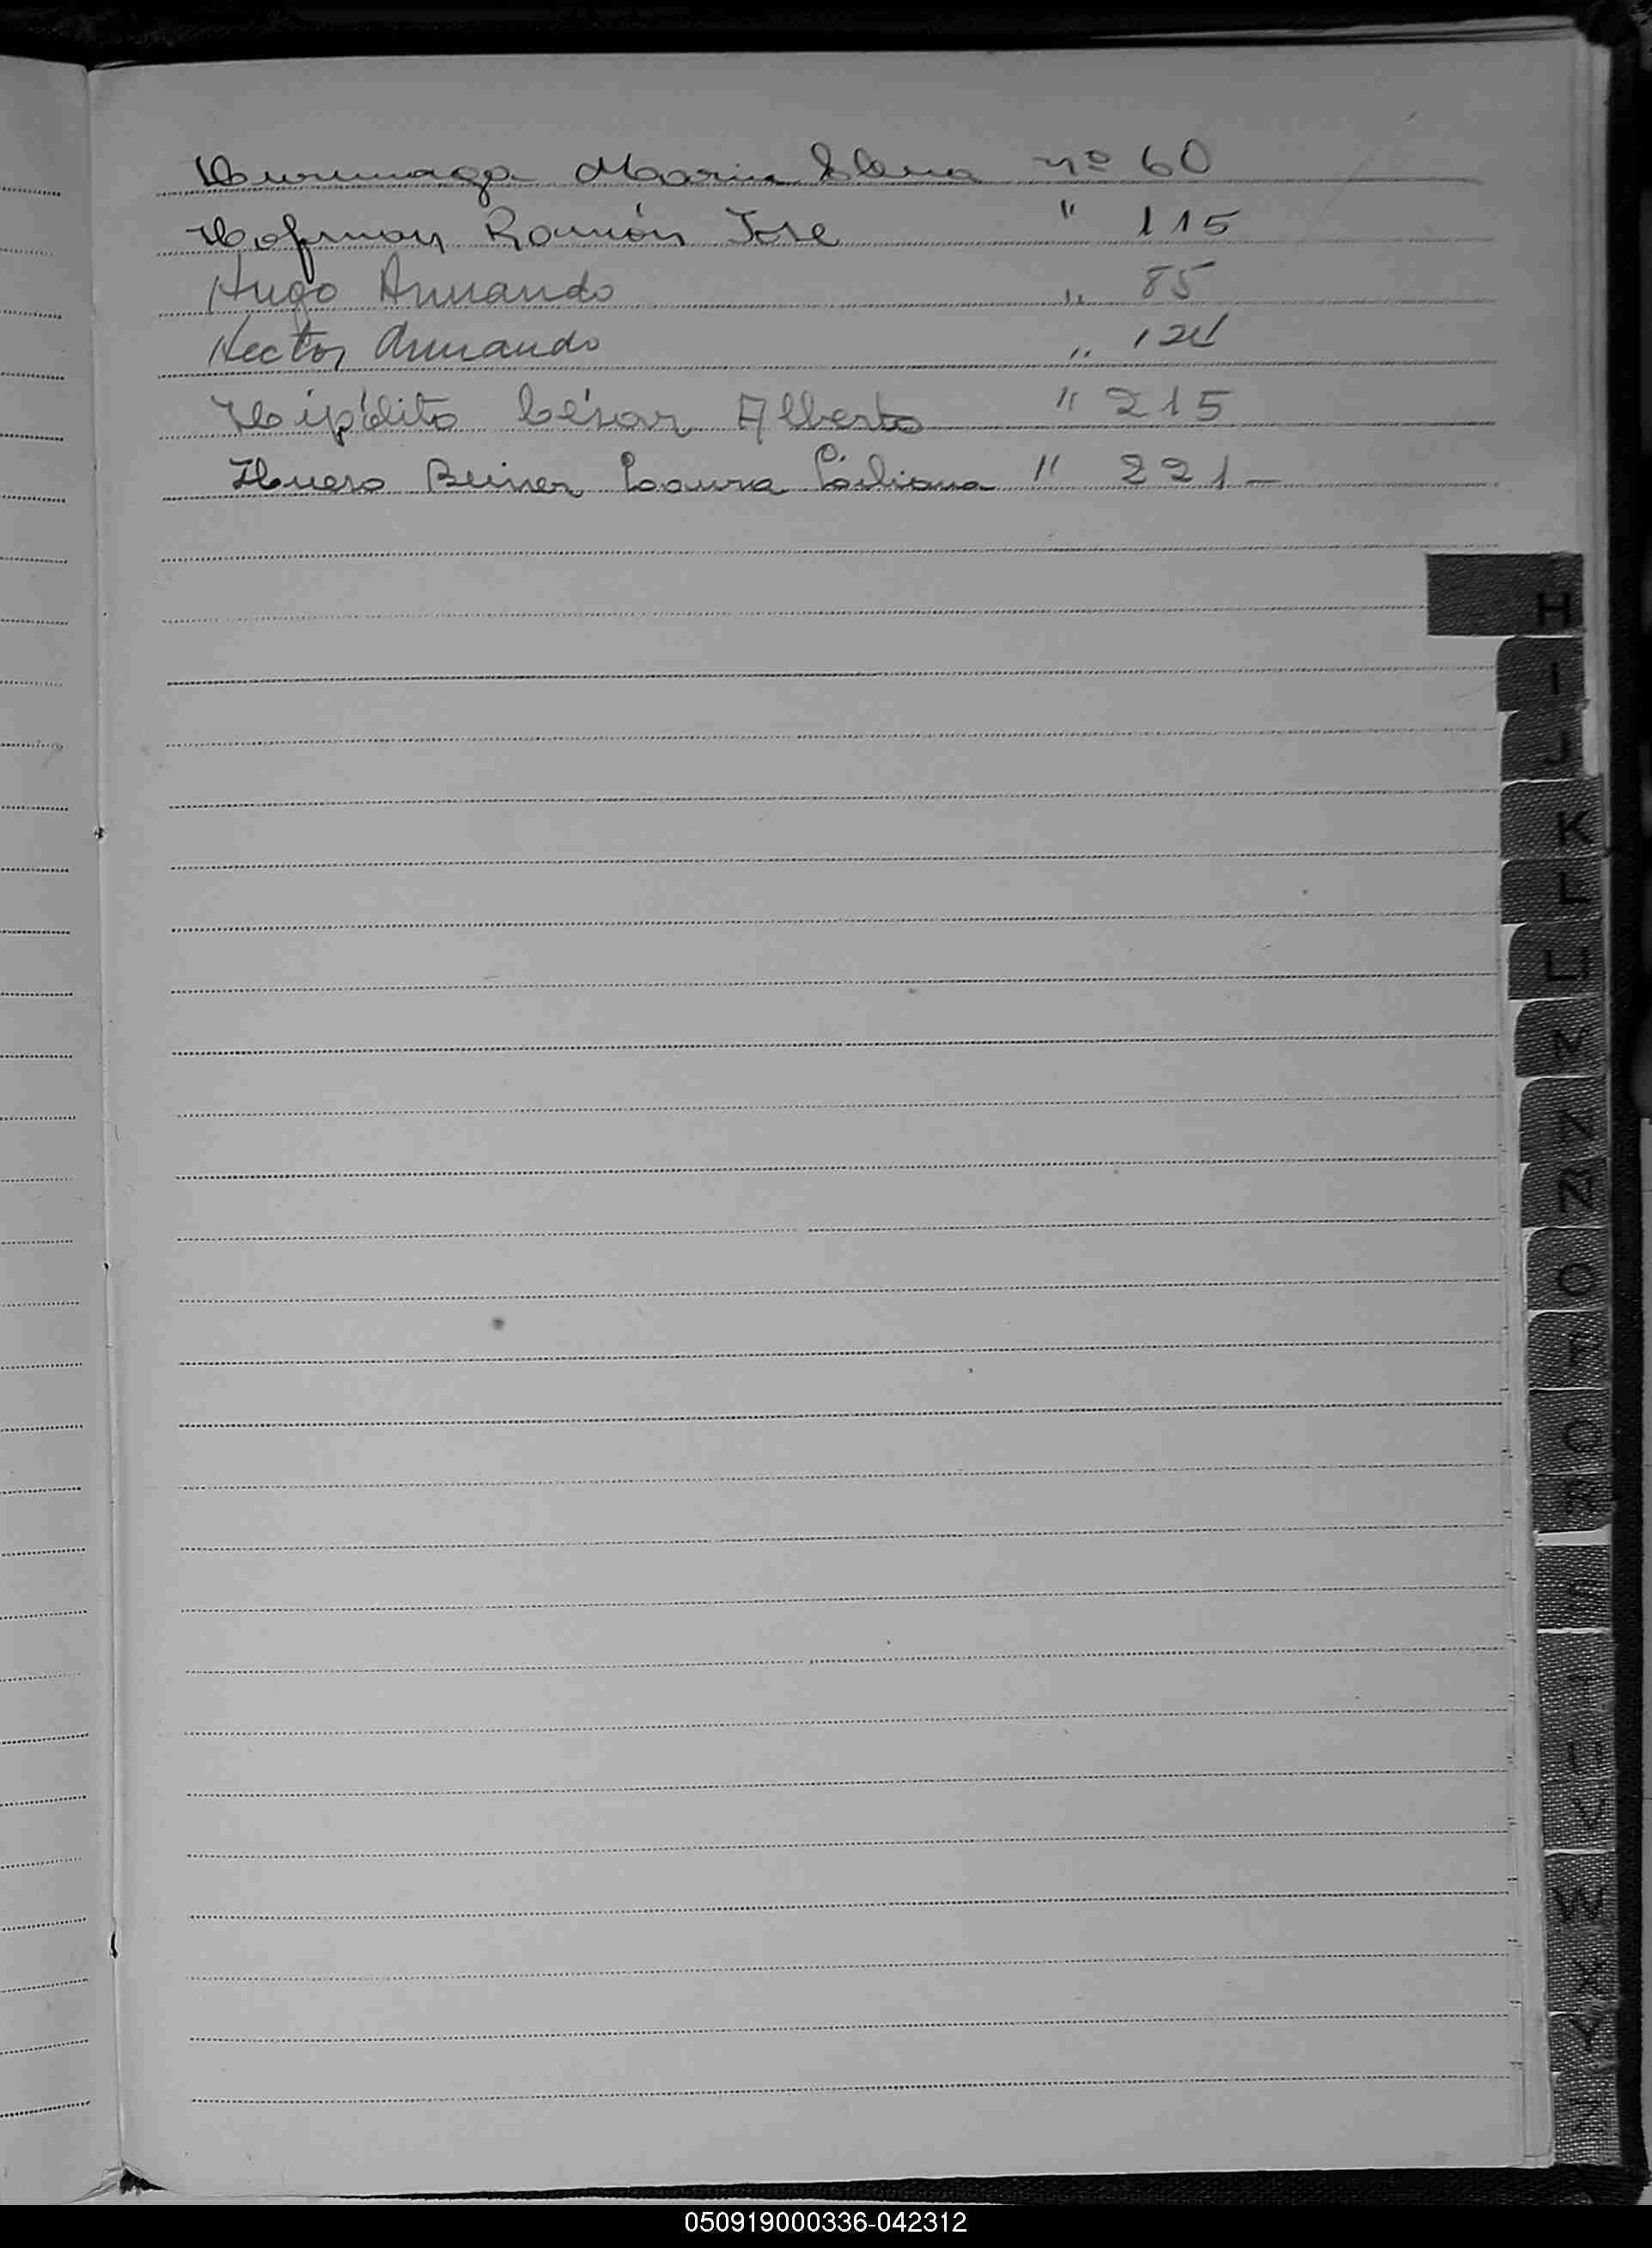 Hurunaga Maria Elena nº 60
Hofman Ramón Jose " 115
Hugo Armando " 85
Hector Armando "
Hipólito César Alberto " 215
Huero Laura Liliana " 221-
H
I
J
K
L
LL
M
N
Ñ
O
P
Q
R
S
T
U
V
W
X
Y
050919000336-042312